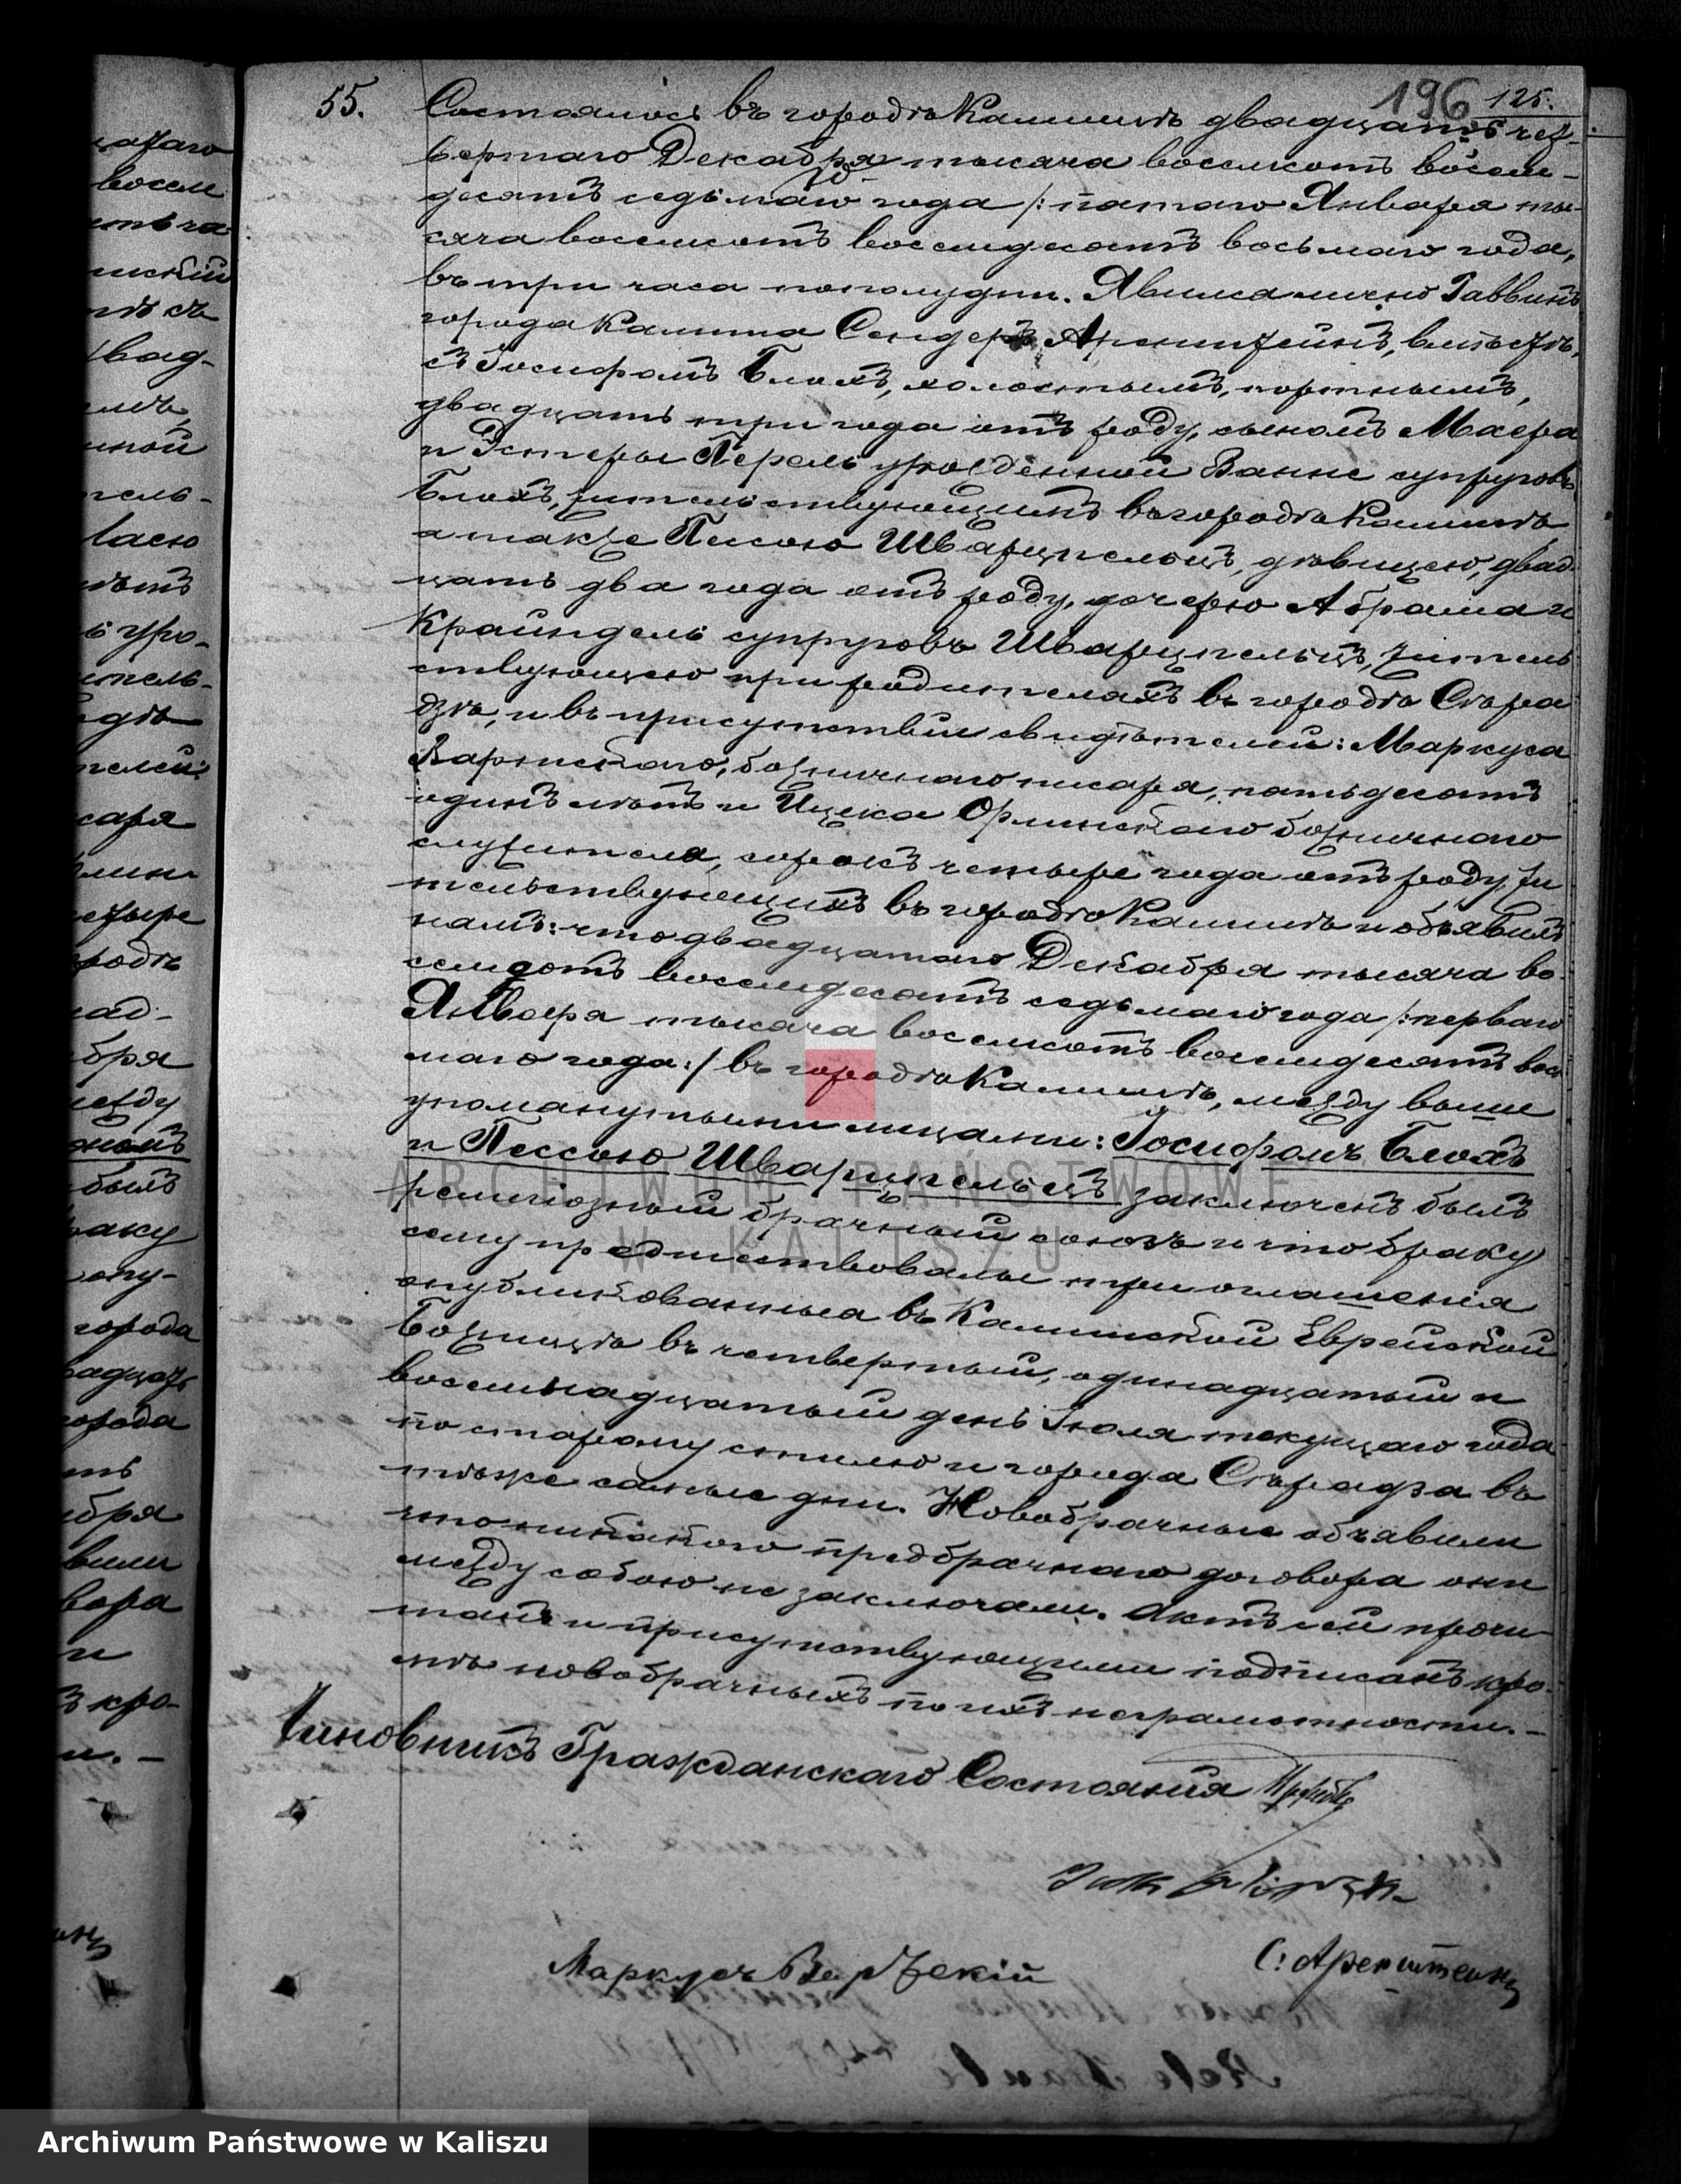 196 125.
55. Состоялось въ городѣ Калишѣ двадцать чет-
вертаго Декабря тысяча восемсотъ восем-
десятъ седьмаго года /: пятаго Января ты-
сяча восемсотъ восемдесятъ восьмаго года,
въ три часа пополудни. Явился лично Раввинъ
города Калиша Сендеръ Аренштейнъ, вмѣстѣ,
съ Іосифомъ Блохъ, холостымъ, портнымъ,
двадцать три года отъ роду, сыномъ Маера
и Эстеры Перель урожденной Ванне супруговъ
Блохъ, жительствующимъ въ городѣ Калишѣ
а также Пессою Шварцпельцъ, дѣвицею, двад-
цать два года отъ роду, дочерью Абрама и
Крайндель супруговъ Шварцпельцъ, житель
ствующею при родителяхъ въ городѣ Сѣра
дзѣ, и въ присутствіи свидѣтелей: Маркуса
Вартскаго, божничнаго писаря, пятьдесятъ
одинъ лѣтъ и Ицека Орлинскаго божничнаго
служителя, сорокъ четыре года отъ роду жи
тельствующихъ въ городѣ Калишѣ и объявилъ
намъ: что двадцатаго Декабря тысяча во-
семсотъ восемдесятъ седьмаго года /: перваго
Января тысяча восемсотъ восемдесятъ вось
маго года :/ въ городѣ Калишѣ, между выше
упомянутыми лицами: Іосифомъ Блохъ
и Пессою Шварцпельцъ заключенъ былъ
религіозный брачный союзъ и что браку
сему предшествовалы три оглашенія
опубликованныя въ Калишской Еврейской
Божницѣ въ четвертый, одинадцатый и
восемнадцатый день Іюля текущаго года
по старому стилю и города Сѣрадза въ
тѣже самые дни. Новобрачные объявили
что никакого предбрачнаго договора они
между собою не заключали. Актъ сей прочи-
танъ и присутствующими подписанъ кро-
мѣ новобрачныхъ по ихъ неграмотности. –
Чиновникъ Гражданскаго Состоянія
Маркусъ Вартскій
С: Аренштейнъ
ARCHIWUM PAŃSTWOWE
W KALISZU
Archiwum Państwowe w Kaliszu